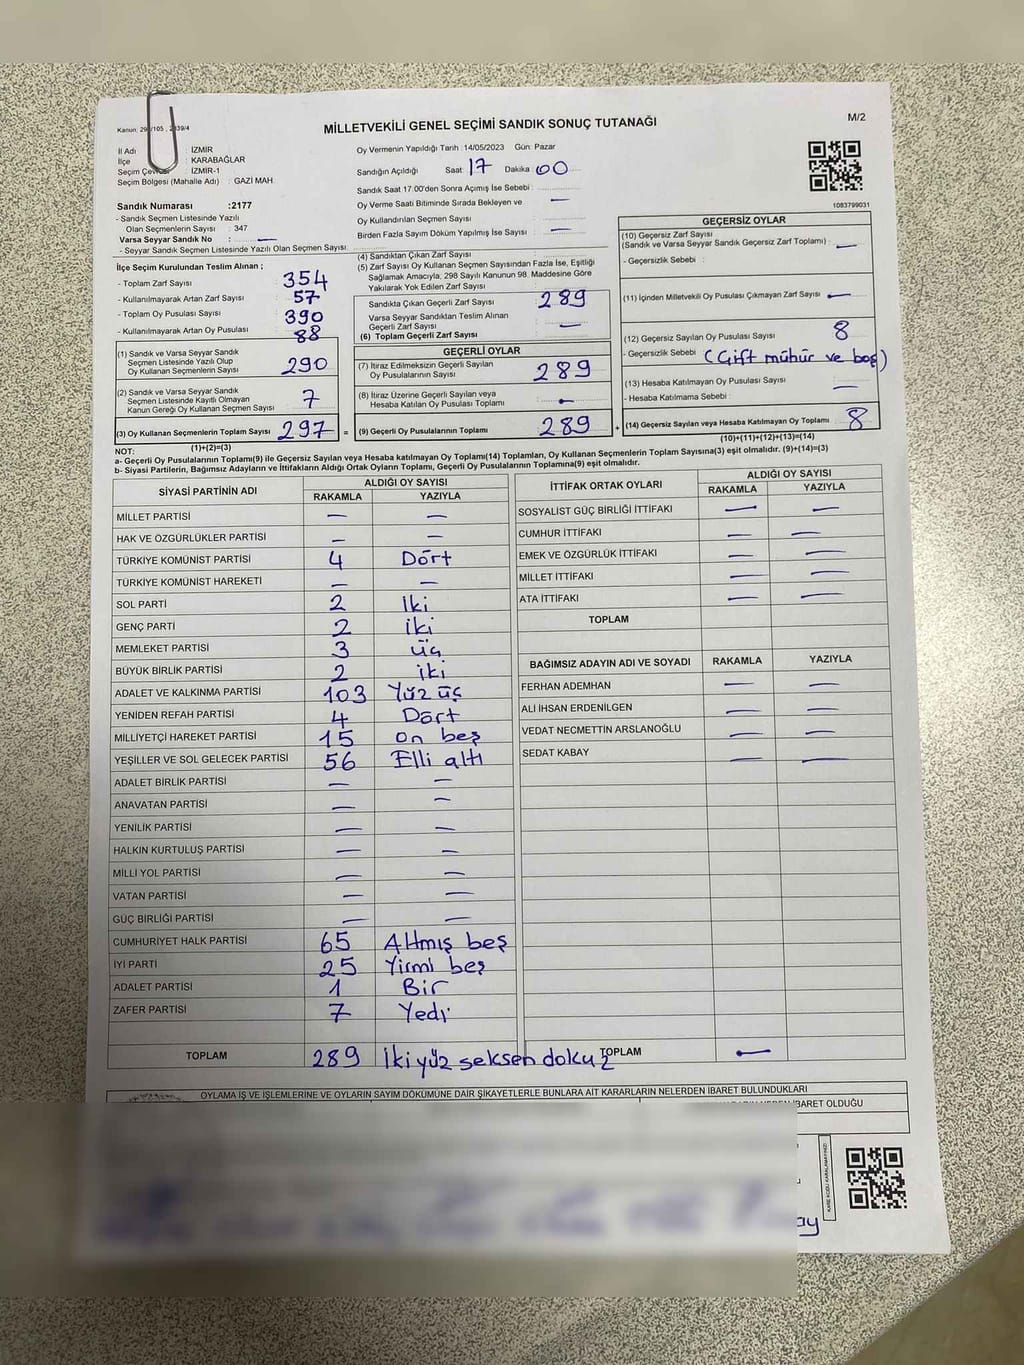 MİLLETVEKİLİ GENEL SEÇİMİ SANDIK SONUÇ TUTANAĞI
M/2
İl Adı : İZMİR
İlçe : KARABAĞLAR
Seçim : İZMİR-1
Seçim Bölgesi (Mahalle Adı) : GAZİ MAH.
Oy Vermenin Yapıldığı Tarih :14/05/2023 Gün: Pazar
Sandığın Açıldığı Saat 17 Dakika 00
Sandık Saat 17.00'den Sonra Açımış İse Sebebi :
Oy Verme Saati Bitiminde Sırada Bekleyen ve —
Oy Kullandırılan Seçmen Sayısı
Birden Fazla Sayım Döküm Yapılmış İse Sayısı : —
1083799031
Sandık Numarası :2177
- Sandık Seçmen Listesinde Yazılı
Olan Seçmenlerin Sayısı : 347
Varsa Seyyar Sandık No : —
- Seyyar Sandık Seçmen Listesinde Yazılı Olan Seçmen Sayısı:
İlçe Seçim Kurulundan Teslim Alınan ;
- Toplam Zarf Sayısı : 354
- Kullanılmayarak Artan Zarf Sayısı : 57
- Toplam Oy Pusulası Sayısı : 390
- Kullanılmayarak Artan Oy Pusulası : 88
(1) Sandık ve Varsa Seyyar Sandık
Seçmen Listesinde Yazılı Olup
Oy Kullanan Seçmenlerin Sayısı : 290
(2) Sandık ve Varsa Seyyar Sandık
Seçmen Listesinde Kayıtlı Olmayan
Kanun Gereği Oy Kullanan Seçmen Sayısı : 7
(3) Oy Kullanan Seçmenlerin Toplam Sayısı : 297 =
(1)+(2)=(3)
(4) Sandıktan Çıkan Zarf Sayısı
(5) Zarf Sayısı Oy Kullanan Seçmen Sayısından Fazla İse, Eşitliği
Sağlamak Amacıyla, 298 Sayılı Kanunun 98. Maddesine Göre
Yakılarak Yok Edilen Zarf Sayısı :
Sandıkta Çıkan Geçerli Zarf Sayısı : 289
Varsa Seyyar Sandıktan Teslim Alınan
Geçerli Zarf Sayısı : —
(6) Toplam Geçerli Zarf Sayısı
GEÇERLİ OYLAR
(7) İtiraz Edilmeksizin Geçerli Sayılan
Oy Pusulalarının Sayısı : 289
(8) İtiraz Üzerine Geçerli Sayılan veya
Hesaba Katılan Oy Pusulası Toplamı : —
(9) Geçerli Oy Pusulalarının Toplamı : 289 +
GEÇERSİZ OYLAR
(10) Geçersiz Zarf Sayısı
(Sandık ve Varsa Seyyar Sandık Geçersiz Zarf Toplamı) : —
- Geçersizlik Sebebi :
(11) İçinden Milletvekili Oy Pusulası Çıkmayan Zarf Sayısı : —
(12) Geçersiz Sayılan Oy Pusulası Sayısı : 8
- Geçersizlik Sebebi : (Çift mühür ve boş)
(13) Hesaba Katılmayan Oy Pusulası Sayısı : —
- Hesaba Katılmama Sebebi :
(14) Geçersiz Sayılan veya Hesaba Katılmayan Oy Toplamı : 8
(10)+(11)+(12)+(13)=(14)
NOT:
a- Geçerli Oy Pusulalarının Toplamı(9) ile Geçersiz Sayılan veya Hesaba Katılmayan Oy Toplamı(14) Toplamları, Oy Kullanan Seçmenlerin Toplam Sayısına(3) eşit olmalıdır. (9)+(14)=(3)
b- Siyasi Partilerin, Bağımsız Adayların ve İttifakların Aldığı Ortak Oyların Toplamı, Geçerli Oy Pusulalarının Toplamına(9) eşit olmalıdır.
SİYASİ PARTİNİN ADI ALDIĞI OY SAYISI
RAKAMLA YAZIYLA
MİLLET PARTİSİ — —
HAK VE ÖZGÜRLÜKLER PARTİSİ — —
TÜRKİYE KOMÜNİST PARTİSİ 4 Dört
TÜRKİYE KOMÜNİST HAREKETİ — —
SOL PARTİ 2 İki
GENÇ PARTİ 2 iki
MEMLEKET PARTİSİ 3 üç
BÜYÜK BİRLİK PARTİSİ 2 iki
ADALET VE KALKINMA PARTİSİ 103 Yüz üç
YENİDEN REFAH PARTİSİ 4 Dört
MİLLİYETÇİ HAREKET PARTİSİ 15 on beş
YEŞİLLER VE SOL GELECEK PARTİSİ 56 Elli altı
ADALET BİRLİK PARTİSİ — —
ANAVATAN PARTİSİ — —
YENİLİK PARTİSİ — —
HALKIN KURTULUŞ PARTİSİ — —
MİLLİ YOL PARTİSİ — —
VATAN PARTİSİ — —
GÜÇ BİRLİĞİ PARTİSİ — —
CUMHURİYET HALK PARTİSİ 65 Altmış beş
İYİ PARTİ 25 Yirmi beş
ADALET PARTİSİ 1 Bir
ZAFER PARTİSİ 7 Yedi
TOPLAM 289 İki yüz seksen dokuz
İTTİFAK ORTAK OYLARI ALDIĞI OY SAYISI
RAKAMLA YAZIYLA
SOSYALİST GÜÇ BİRLİĞİ İTTİFAKI — —
CUMHUR İTTİFAKI — —
EMEK VE ÖZGÜRLÜK İTTİFAKI — —
MİLLET İTTİFAKI — —
ATA İTTİFAKI — —
TOPLAM
BAĞIMSIZ ADAYIN ADI VE SOYADI RAKAMLA YAZIYLA
FERHAN ADEMHAN — —
ALİ İHSAN ERDENİLGEN — —
VEDAT NECMETTİN ARSLANOĞLU — —
SEDAT KABAY — —
TOPLAM —
OYLAMA İŞ VE İŞLEMLERİNE VE OYLARIN SAYIM DÖKÜMÜNE DAİR ŞİKAYETLERLE BUNLARA AİT KARARLARIN NELERDEN İBARET BULUNDUKLARI
İBARET OLDUĞU